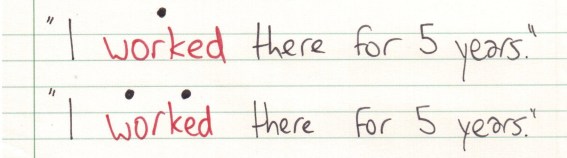 "I worked there for 5 years."
"I worked there for 5 years."